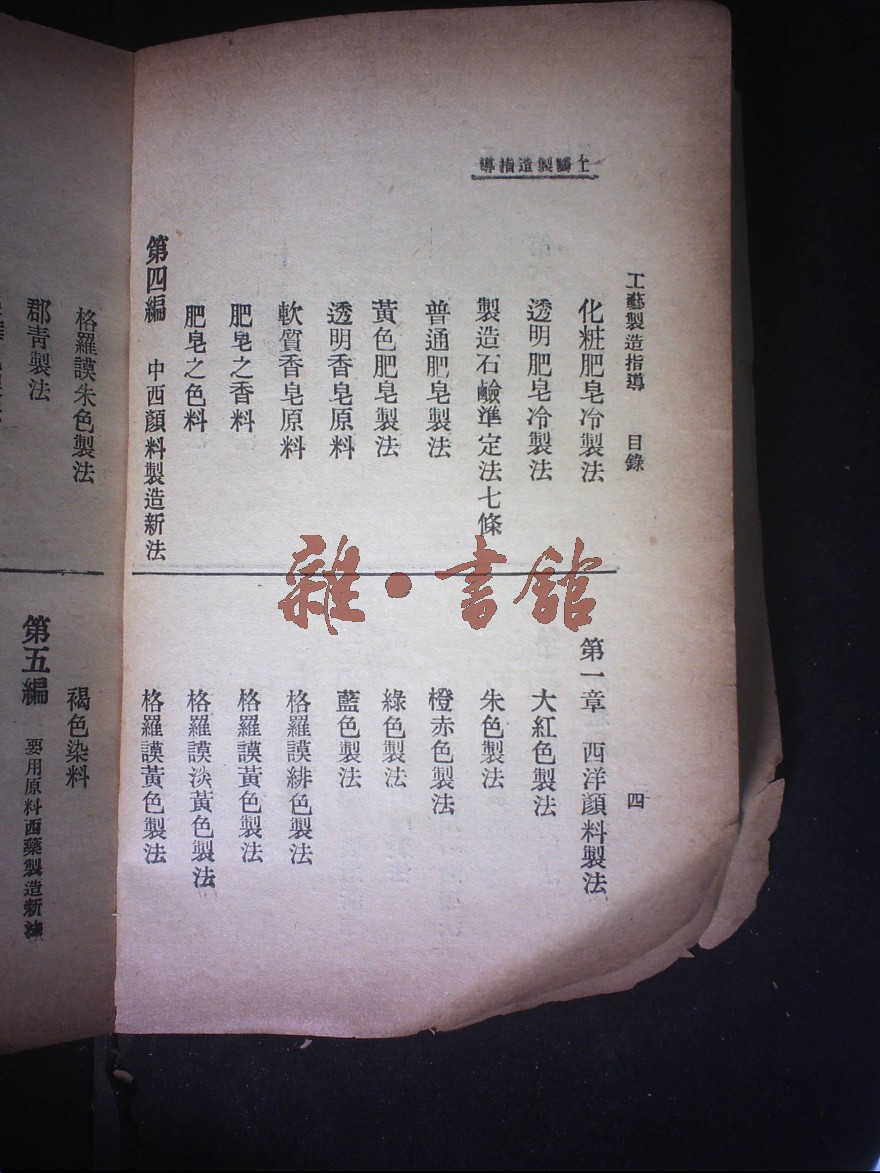 工藝製造指導
工藝製造指導 目錄 四
化粧肥皂冷製法
透明肥皂冷製法
製造石鹼準定法七條
普通肥皂製法
黃色肥皂製法
透明香皂原料
軟質香皂原料
肥皂之香料
肥皂之色料
第四編 中西顏料製造新法
第一章 西洋顏料製法
大紅色製法
朱色製法
橙赤色製法
綠色製法
藍色製法
格羅謨緋色製法
格羅謨黃色製法
格羅謨淡黃色製法
格羅謨黃色製法
格羅謨朱色製法
郡青製法
褐色染料
第五編 要用原料西藥製造新法
雜·書館